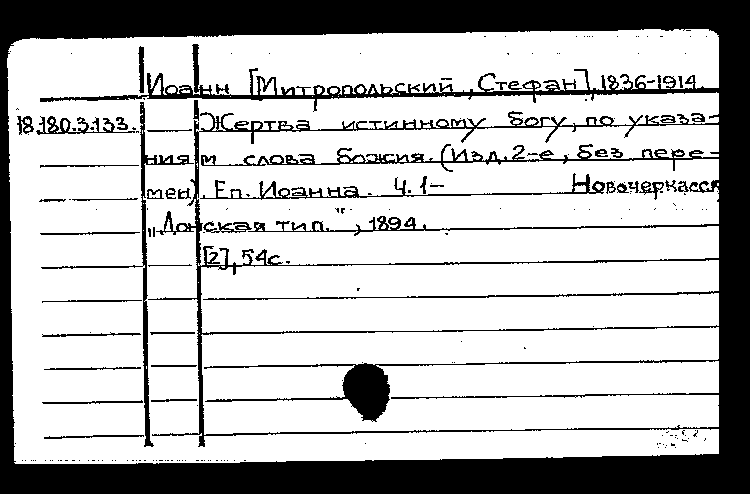 Иоанн [Митропольский, Стефан], 1836-1914.
18.180.3.133. Жертва истинному богу, по указа-
ниям слова божия. (Изд. 2-е, без пере-
мен). Еп. Иоанна. Ч. 1- Новочеркасск,
„Донская тип.", 1894.
[2], 54с.